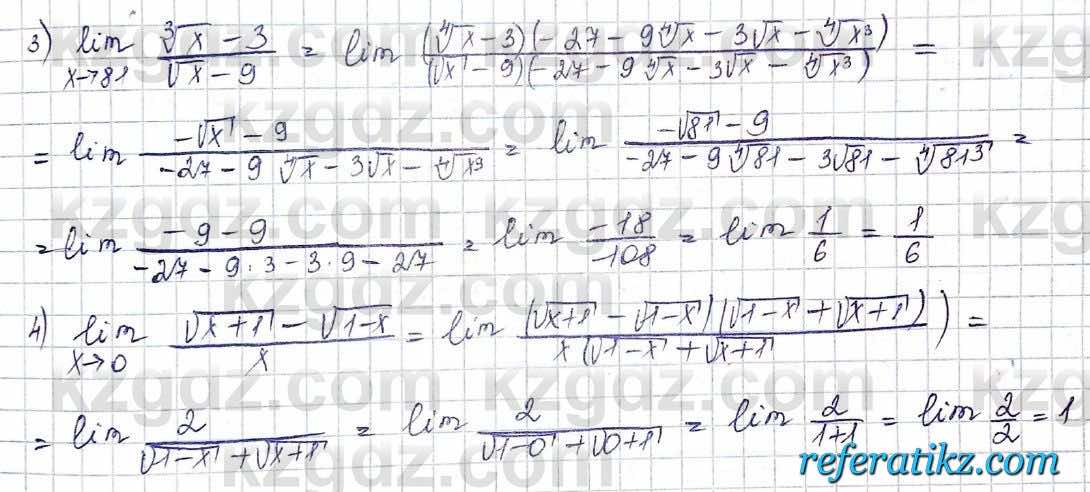 3) lim x→81 (∛x − 3)/(√x − 9) = lim ((∜x − 3)(−27 − 9∜x − 3√x − ∜x³))/((√x − 9)(−27 − 9∜x − 3√x − ∜x³)) =
= lim (−√x − 9)/(−27 − 9∜x − 3√x − ∜x³) = lim (−√81 − 9)/(−27 − 9∜81 − 3√81 − ∜81³) =
= lim (−9 − 9)/(−27 − 9·3 − 3·9 − 27) = lim (−18)/(−108) = lim 1/6 = 1/6
4) lim x→0 (√(x+1) − √(1−x))/x = lim ((√(x+1) − √(1−x))(√(1−x) + √(x+1)))/(x(√(1−x) + √(x+1))) =
= lim 2/(√(1−x) + √(x+1)) = lim 2/(√(1−0) + √(0+1)) = lim 2/(1+1) = lim 2/2 = 1
kzgdz.com
referatikz.com